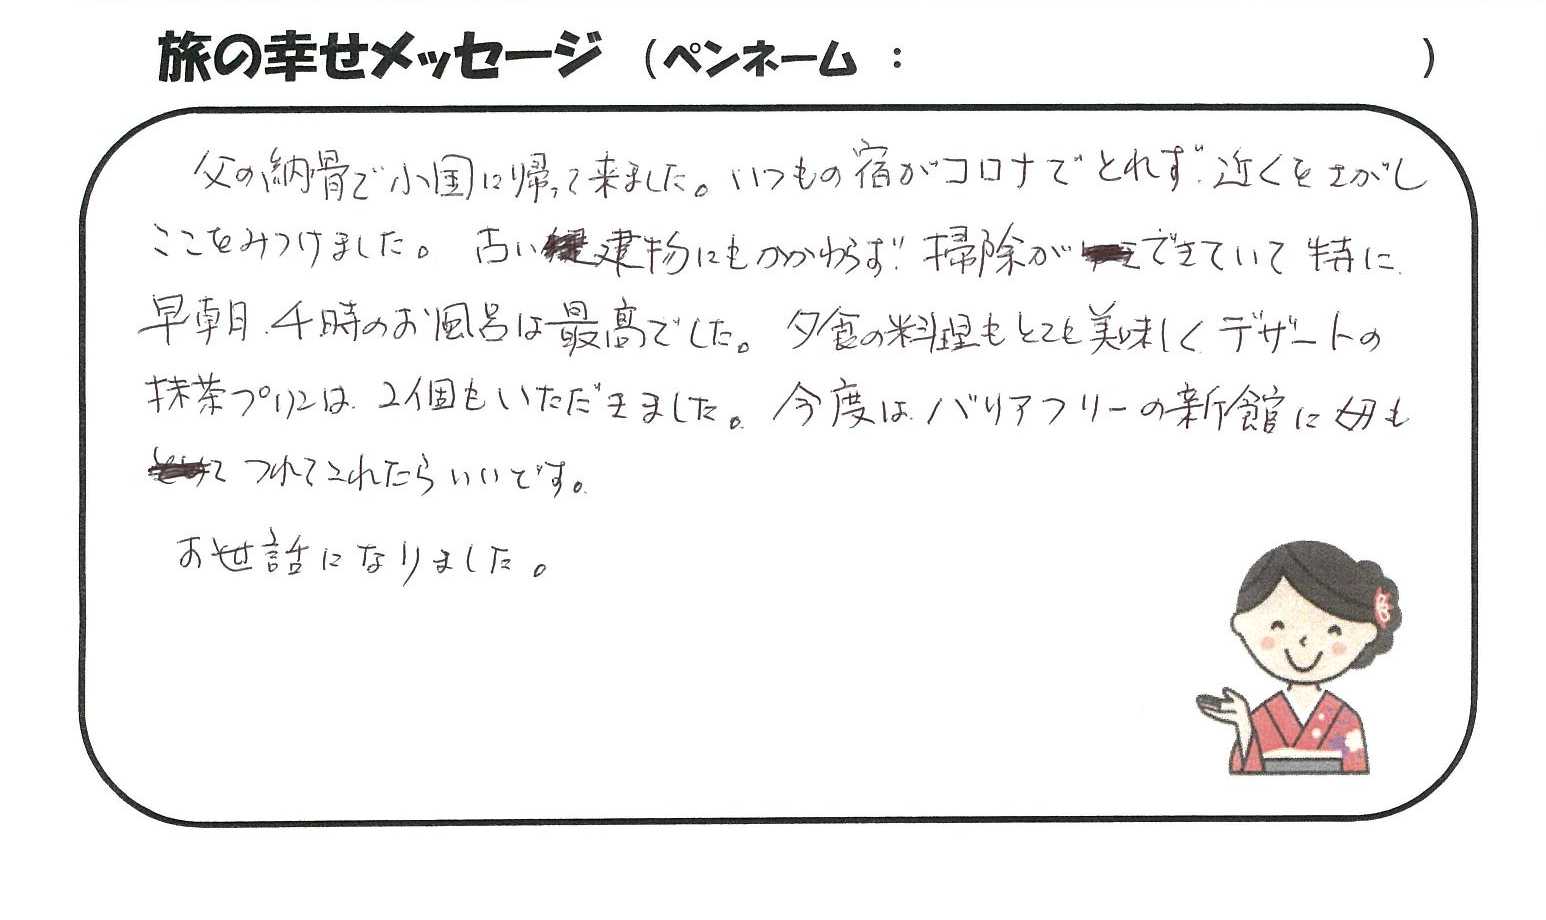 旅の幸せメッセージ (ペンネーム : )
父の納骨で小国に帰って来ました。いつもの宿がコロナでとれず、近くをさがし
ここをみつけました。古い建物にもかかわらず、掃除ができていて特に
早朝、4時のお風呂は最高でした。夕食の料理もとても美味しくデザートの
抹茶プリンは、2個もいただきました。今度はバリアフリーの新館に母も
つれてこれたらいいです。
お世話になりました。